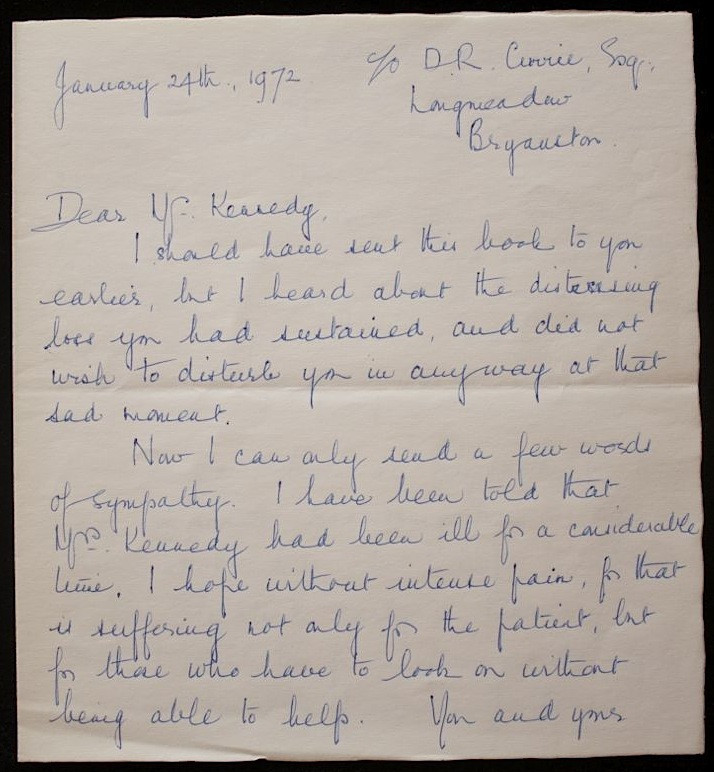 January 24th., 1972
c/o D.R. Currie, Esq.,
Longmeadow
Bryanston.
Dear Mr. Kennedy,
I should have sent this book to you
earlier, but I heard about the distressing
loss you had sustained, and did not
wish to disturb you in anyway at that
sad moment.
Now I can only send a few words
of sympathy. I have been told that
Mrs. Kennedy had been ill for a considerable
time. I hope without intense pain, for that
is suffering not only for the patient, but
for those who have to look on without
being able to help. You and yours